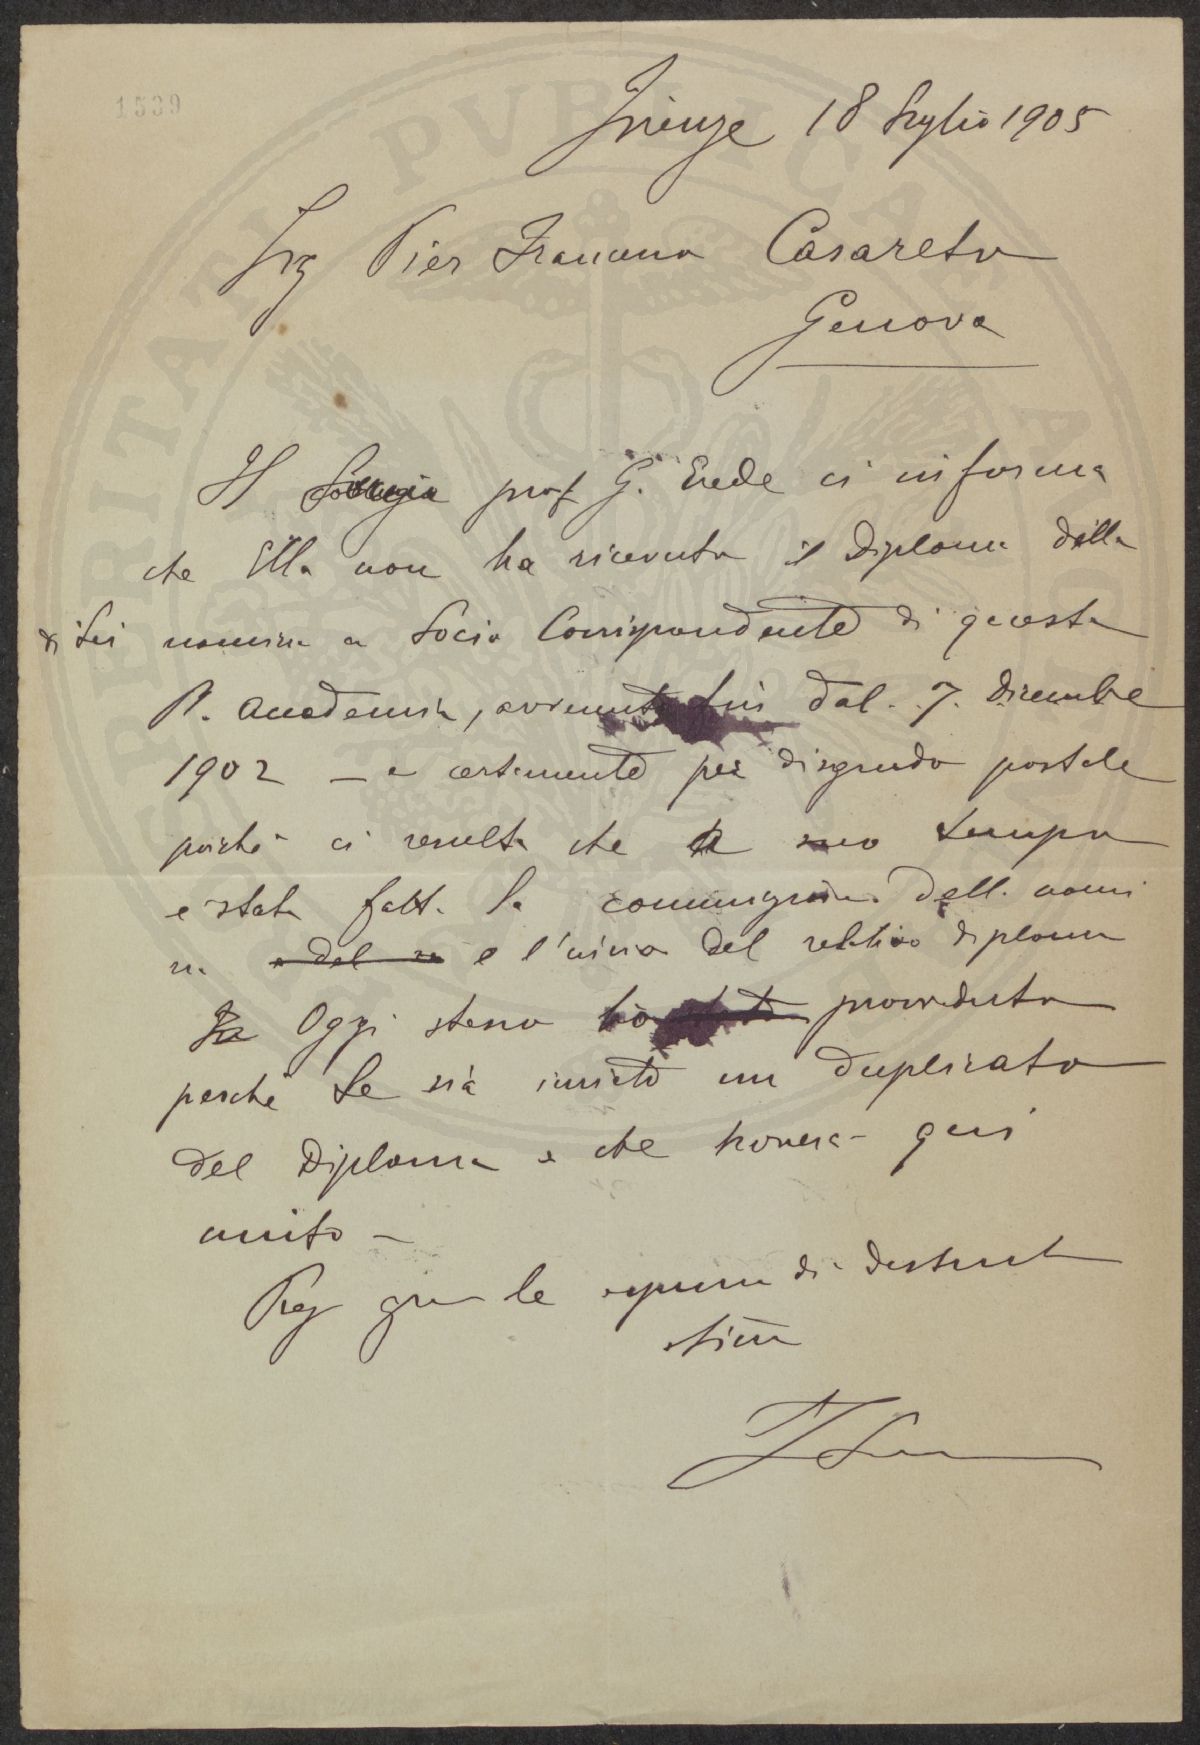 1539
Firenze 18 Luglio 1905
Ing Pier Francesco Casareto
Genova
Il prof G. Erede ci informa
che Ella non ha ricevuto il Diploma della
di Lei nomina a Socio Corrispondente di questa
R. Accademia, avvenuta fin dal. 7. Dicembre
1902 — e certamente per disguido postale
poichè ci resulta che a suo tempo
e stata fatta la comunicazione della nomi
na e del re e l'invio del relativo diploma
Oggi stesso ho provveduto
perchè Le sia inviato un duplicato
del Diploma e che troverà qui
unito —
di distinta
stima